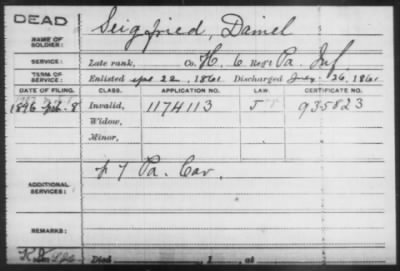 DEAD
NAME OF SOLDIER: Seigfried, Daniel
SERVICE: Late rank, Co. H, 6 Reg't Pa. Inf.
TERM OF SERVICE: Enlisted Apl 22, 1861 Discharged July 26, 1861
DATE OF FILING. CLASS. APPLICATION NO. LAW. CERTIFICATE NO.
1896 8 Invalid, 1174113 J 935823
Widow,
Minor,
ADDITIONAL SERVICES: 7 Pa. Cav.
REMARKS:
Died , 1 , at